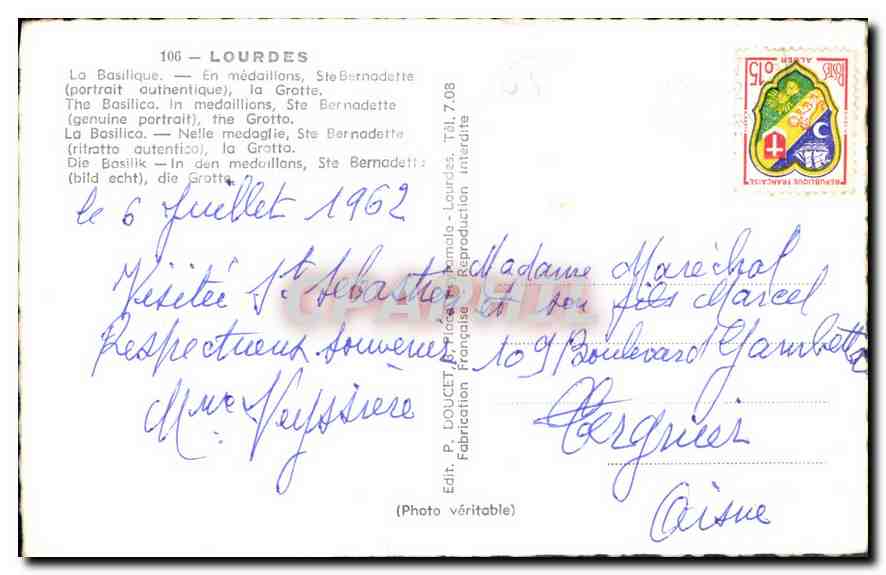 106 — LOURDES
La Basilique. — En médaillons, Ste Bernadette
(portrait authentique), la Grotte.
The Basilica. In medaillions, Ste Bernadette
(genuine portrait), the Grotto.
La Basilica. — Nelle medaglie, Ste Bernadette
(ritratto autentico), la Grotta.
Die Basilik — In den medaillons, Ste Bernadette
(bild echt), die Grotte.
le 6 Juillet 1962
Visitée St Sébastien
Respectueux souvenir
Mme Veyssière
Edit. P. DOUCET, Place - Lourdes. Tél. 7.08
Fabrication Française Reproduction interdite
(Photo véritable)
POSTES 0,15
ALGER
REPUBLIQUE FRANÇAISE
Madame Maréchal
et son fils Marcel
109 Boulevard Gambetta
Tergnier
Aisne
CPARSITL